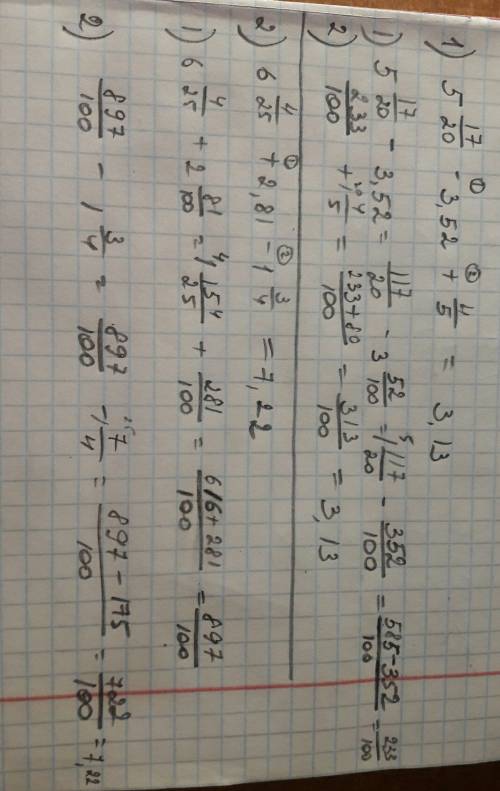 1) 5 17/20 -① 3,52 +② 4/5 = 3,13
1) 5 17/20 - 3,52 = 117/20 - 3 52/100 = ⁵⁾117/20 - 352/100 = 585-352/100 = 233/100
2) 233/100 + ²⁰⁾4/5 = 233+80/100 = 313/100 = 3,13
2) 6 4/25 +① 2,81 -② 1 3/4 = 7,22
1) 6 4/25 + 2 81/100 = ⁴⁾154/25 + 281/100 = 616+281/100 = 897/100
2) 897/100 - 1 3/4 = 897/100 - ²⁵⁾7/4 = 897-175/100 = 722/100 = 7,22